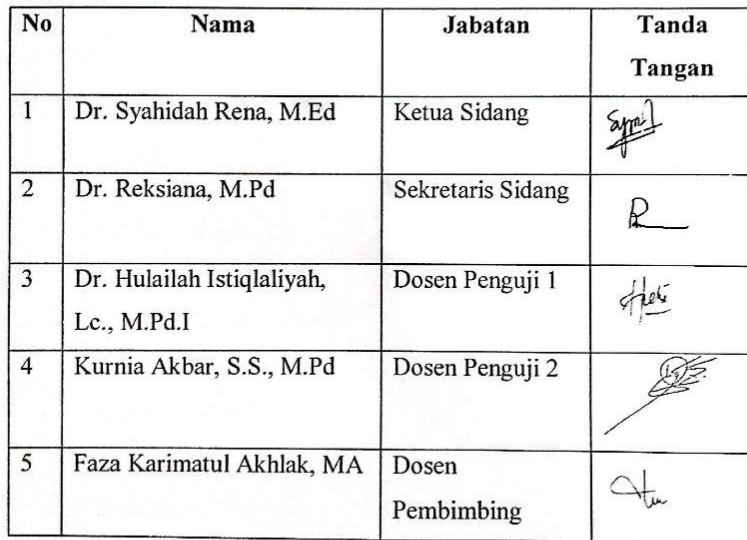 No Nama Jabatan Tanda
Tangan
1 Dr. Syahidah Rena, M.Ed Ketua Sidang
2 Dr. Reksiana, M.Pd Sekretaris Sidang
3 Dr. Hulailah Istiqlaliyah, Dosen Penguji 1
Lc., M.Pd.I
4 Kurnia Akbar, S.S., M.Pd Dosen Penguji 2
5 Faza Karimatul Akhlak, MA Dosen
Pembimbing